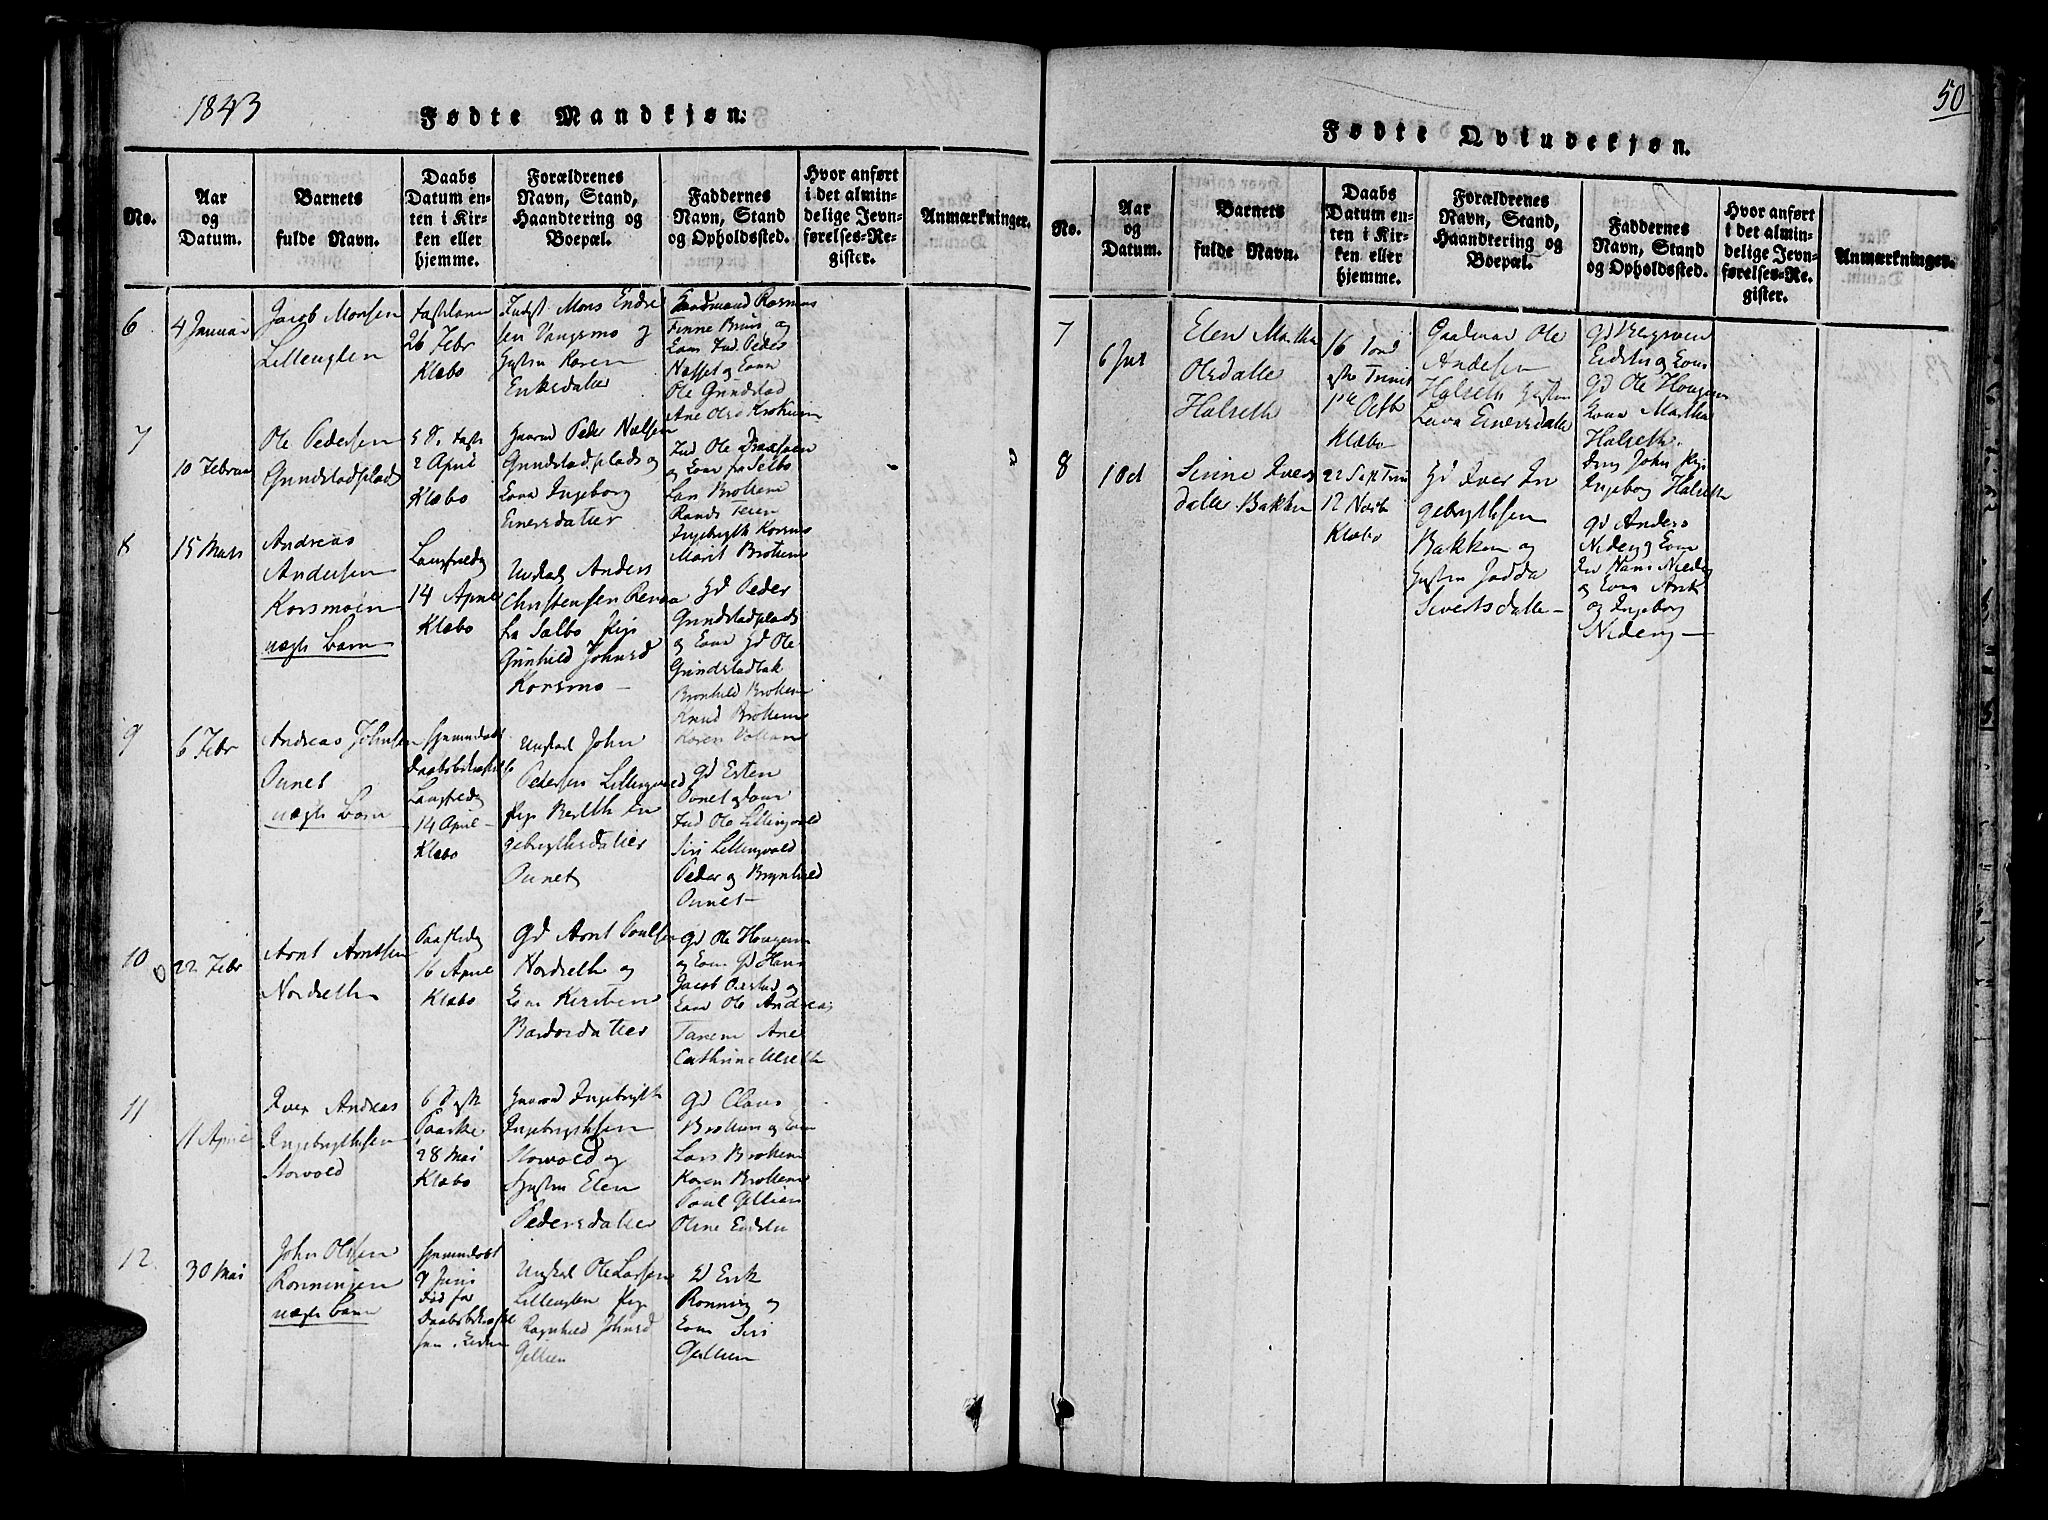 1843
Fødte Mandkjøn.
No.
Aar
og
Datum.
Barnets
fulde Navn.
Daabs
Datum en-
ten i Kir-
ken eller
hjemme.
Forældrenes
Navn, Stand,
Haandtering og
Boepæl.
Faddernes
Navn, Stand
og Opholdssted.
Hvor anført
i det almin-
delige Jevn-
førelses-Re-
gister.
Anmærkninger.
6
4 Januar
Jacob Monsen
Lilleugten
Fastelavn
26 Febr
Klæbo
Mons Endre
sen Vangsmo og
Hustru Karen
Eriksdatter
Gaardmand Rasmus
Finne Bruns og
Kone Ind. Peder
Næsset og Kone
Ole Grundstad
Ane Olsd Krokum
7
10 Februar
Ole Pedersen
Grundstadplads
5 S. Fast
2 April
Klæbo
Huusmd Peder Nielsen
Grundstadplads og
Kone Ingeborg
Einersdatter
Ind Ole Draxsøen
og Kone fra Selbo
Lars Brøttem
Rands Teien
Ingebrygth Korsmo
Marit Brøttem
8
15 Mars
Andreas
Andersen
Korsmoen
uægte Barn
Langfredag
14 April
Klæbo
Ungkarl Anders
Christensen Renaa
fra Selbo Pige
Gunhild Johnsd
Korsmo
Gd Peder
Grundstadplads
og Kone Gd Ole
Grundstadbak
Brønhild Brøttem
Knud Brøttem
Karen Voltan
9
6 Febr
Andreas Johnsen
Punet
uægte Barn
Hjemmedøbt
Daabsbekræftelse
Langfredag
14 April
Klæbo
Ungkarl John
Pedersen Lillingvold
Pige Berith In
gebrygthsdatter
Punet
Gd Esten
Punet og Kone
Ind Ole Lillingvold
Siri Lillingvold
Peder og Brynhild
Punet
10
22 Febr
Arnt Arntsen
Nordseth
Paaskedag
16 April
Klæbo
Gd Arnt Poulsen
Nordseth og
Kone Kirsten
Bardosdatter
Gd Ole Haugen
og Kone Gd Hans
Jacob Ørstad og
Kone Ole Andreas
Tanem Ane
Cathrine Ulseth
11
11 April
Iver Andreas
Ingebrygthsen
Storvold
6 S. eft
Paaske
28 Mai
Klæbo
Huusmd Ingebrygth
Ingebrygthsen
Storvold og
Hustru Elen
Pedersdatter
Gd Claus
Brøttem og Kone
Lars Brøttem
Karen Brøttem
Paul Gellien
Oline Eidstu
12
30 Mai
John Olsen
Rønningen
uægte Barn
Hjemmedøbt
9 Juni
Død før
Daabsbekræftel
sen i Kirken
Ungkarl Ole Larsen
Lilleugten Pige
Ragnhild Johnsd
Gellien
Gd Erik
Rønning og
Kone Siri
Gellien
50
Fødte Qvindekjøn.
No.
Aar
og
Datum.
Barnets
fulde Navn.
Daabs
Datum en-
ten i Kir-
ken eller
hjemme.
Forældrenes
Navn, Stand,
Haandtering og
Boepæl.
Faddernes
Navn, Stand
og Opholdssted.
Hvor anført
i det almin-
delige Jevn-
førelses-Re-
gister.
Anmærkninger.
7
6 Jul
Elen Martha
Olsdatter
Halseth
16 Sønd
efter Trinit
1ste Octb
Klæbo
Gaardmd Ole
Andersen
Halseth Hustru
Lava Einersdatter
Eidstu og Kone
Gd Ole Haugen
Kone Martha
Halseth
Dreng John Pige
Ingeborg Halseth
8
1 Oct
Serine Ivers
datter Bakken
22 S. eft Trin
12 Novbr
Klæbo
Gd Iver In
gebrygthsen
Bakken og
Hustru Jodda
Sivertsdatter
Gd Anders
Nideng og Kone
Hans Nideng
og Kone Arnt
og Ingeborg
Nideng